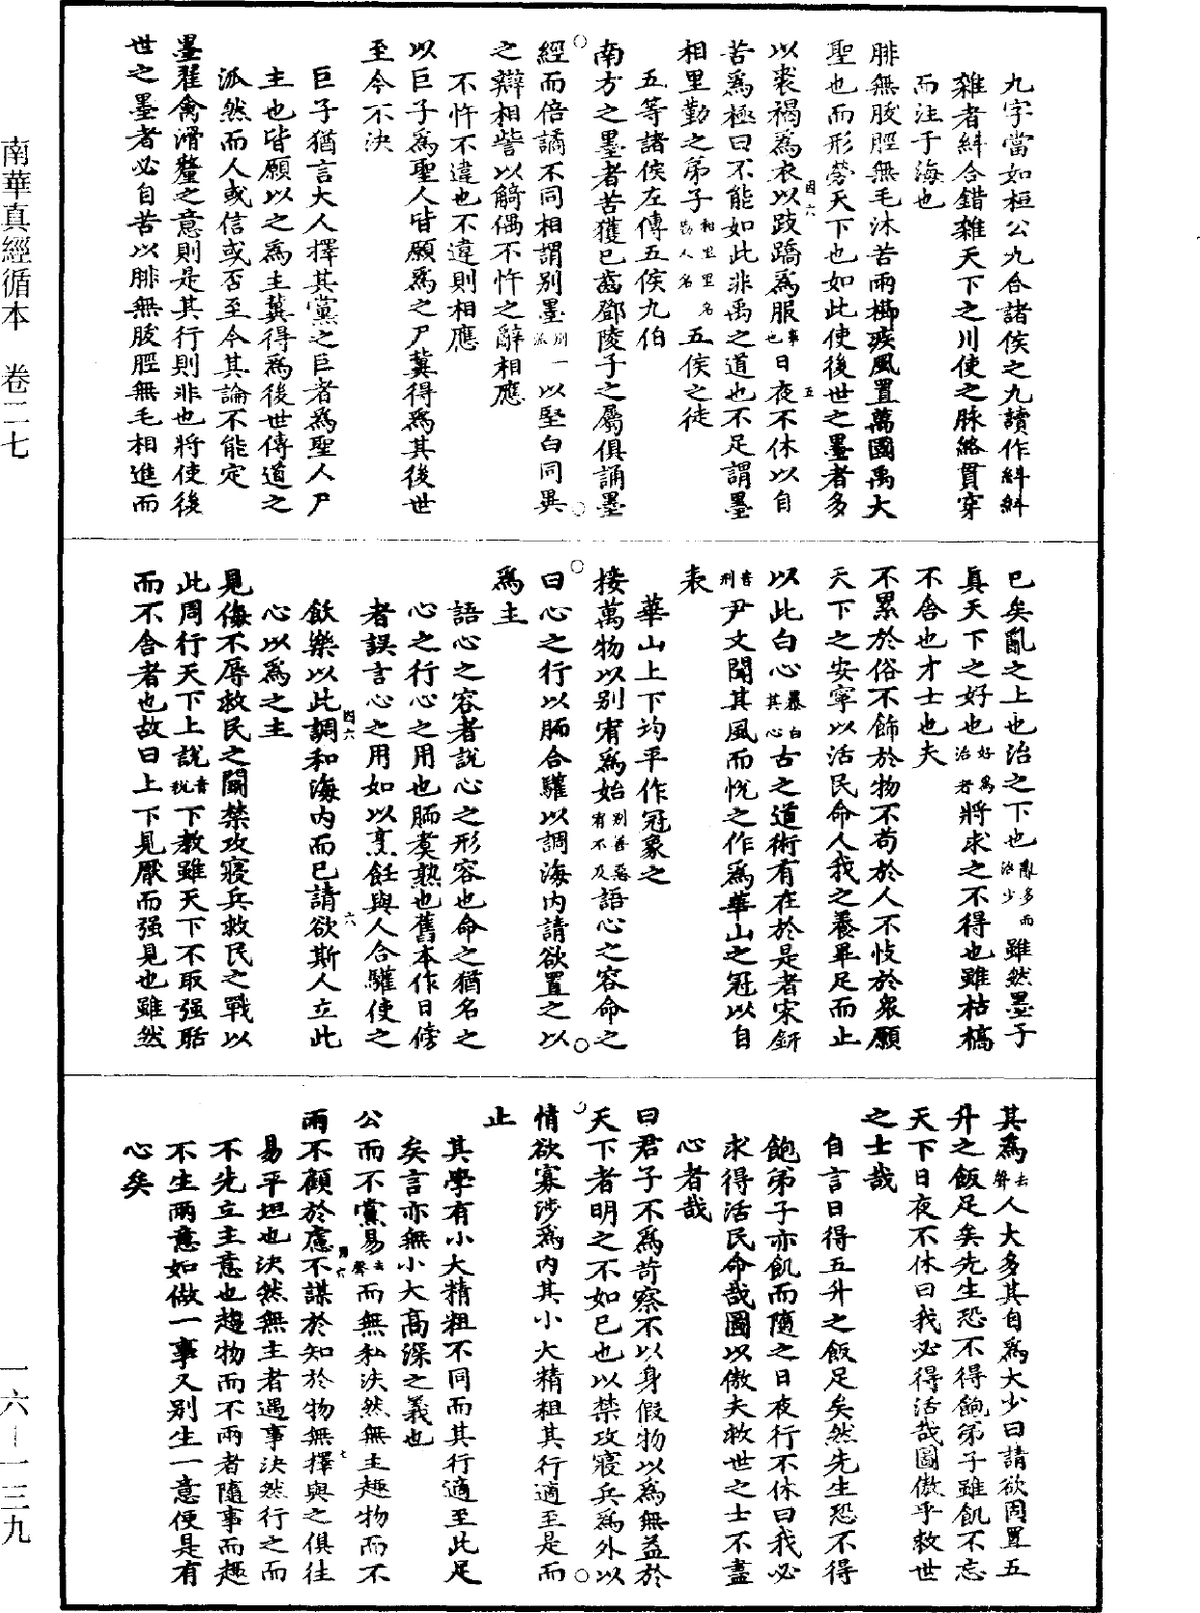 南華真經循本　卷二七
一六—一三九
九字當如桓公九合諸侯之九讀作糾糾
雜者糾合錯雜天下之川使之脉絡貫穿
而注于海也
腓無胈脛無毛沐苦雨櫛疾風置萬國禹大
聖也而形勞天下也如此使後世之墨者多
以裘褐為衣以跂蹻為服事也日夜不休以自
苦為極曰不能如此非禹之道也不足謂墨
相里勤之弟子相里里名勤人名五侯之徒
五等諸侯左傳五侯九伯
南方之墨者苦獲已齒鄧陵子之屬俱誦墨
經而倍譎不同相謂別墨別一派以堅白同異
之辯相訾以觭偶不忤之辭相應
不忤不違也不違則相應
以巨子為聖人皆願為之尸冀得為其後世
至今不決
巨子猶言大人擇其黨之巨者為聖人尸
主也皆願以之為主冀得為後世傳道之
派然而人或信或否至今其論不能定
墨翟禽滑釐之意則是其行則非也將使後
世之墨者必自苦以腓無胈脛無毛相進而
已矣亂之上也治之下也亂多而治少雖然墨子
真天下之好也好為治者將求之不得也雖枯槁
不舍也才士也夫
不累於俗不飾於物不苟於人不忮於衆願
天下之安寧以活民命人我之養畢足而止
以此白心暴白其心古之道術有在於是者宋鈃
音刑尹文聞其風而悅之作為華山之冠以自
表
華山上下均平作冠象之
接萬物以別宥為始別善惡宥不及語心之容命之
曰心之行以胹合驩以調海内請欲置之以
為主
語心之容者說心之形容也命之猶名之
心之行心之用也胹煑熟也舊本作日傍
者誤言心之用如以烹飪與人合驩使之
飲樂以此調和海内而已請欲斯人立此
心以為之主
見侮不辱救民之鬬禁攻寢兵救民之戰以
此周行天下上說音稅下教雖天下不取強聒
而不舍者也故曰上下見厭而强見也雖然
其為去聲人大多其自為大少曰請欲固置五
升之飯足矣先生恐不得飽弟子雖飢不忘
天下日夜不休曰我必得活哉圖傲乎救世
之士哉
自言日得五升之飯足矣然先生恐不得
飽弟子亦飢而隨之日夜行不休曰我必
求得活民命哉圖以傲夫救世之士不盡
心者哉
曰君子不為苛察不以身假物以為無益於
天下者明之不如已也以禁攻寢兵為外以
情欲寡涉為内其小大精粗其行適至是而
止
其學有小大精粗不同而其行適至此足
矣言亦無小大高深之義也
公而不黨易去聲而無私決然無主趣物而不
兩不顧於慮不謀於知於物無擇與之俱往
易平坦也決然無主者遇事決然行之而
不先立主意也趣物而不兩者隨事而趣
不生兩意如做一事又別生一意便是有
心矣